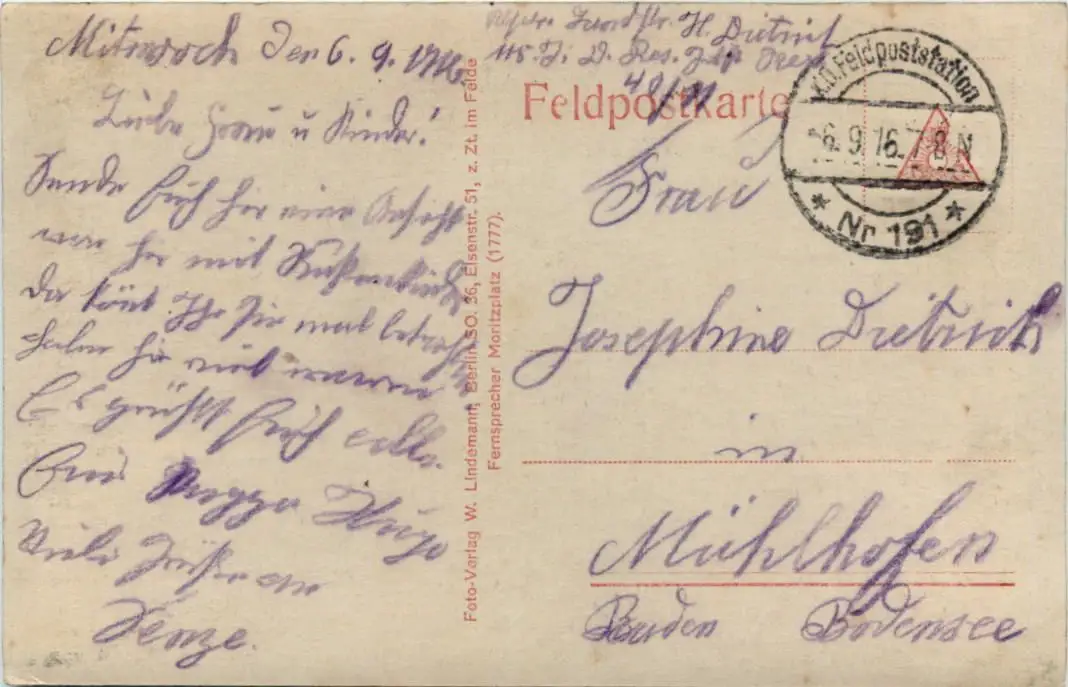 Mittwoch den 6. 9. 1916.
Liebe Frau u Kinder!
Sende Euch hier eine Ansicht
von hier mit
Da könt Ihr Sie mal betrachten
haben hir viel
Es grüßt Euch alle.
Euer Hugo
Viele Grüße an
H. Dietrich
115. I. D. Res.
Feldpostkarte
K.D. Feldpoststation
6.9.16. 8 N
* Nr 191 *
Frau
Josephine Dietrich
in
Mühlhofen
Baden Bodensee
Foto-Verlag W. Lindemann, Berlin SO. 36, Elsenstr. 51, z. Zt. im Felde
Fernsprecher Moritzplatz (1777).